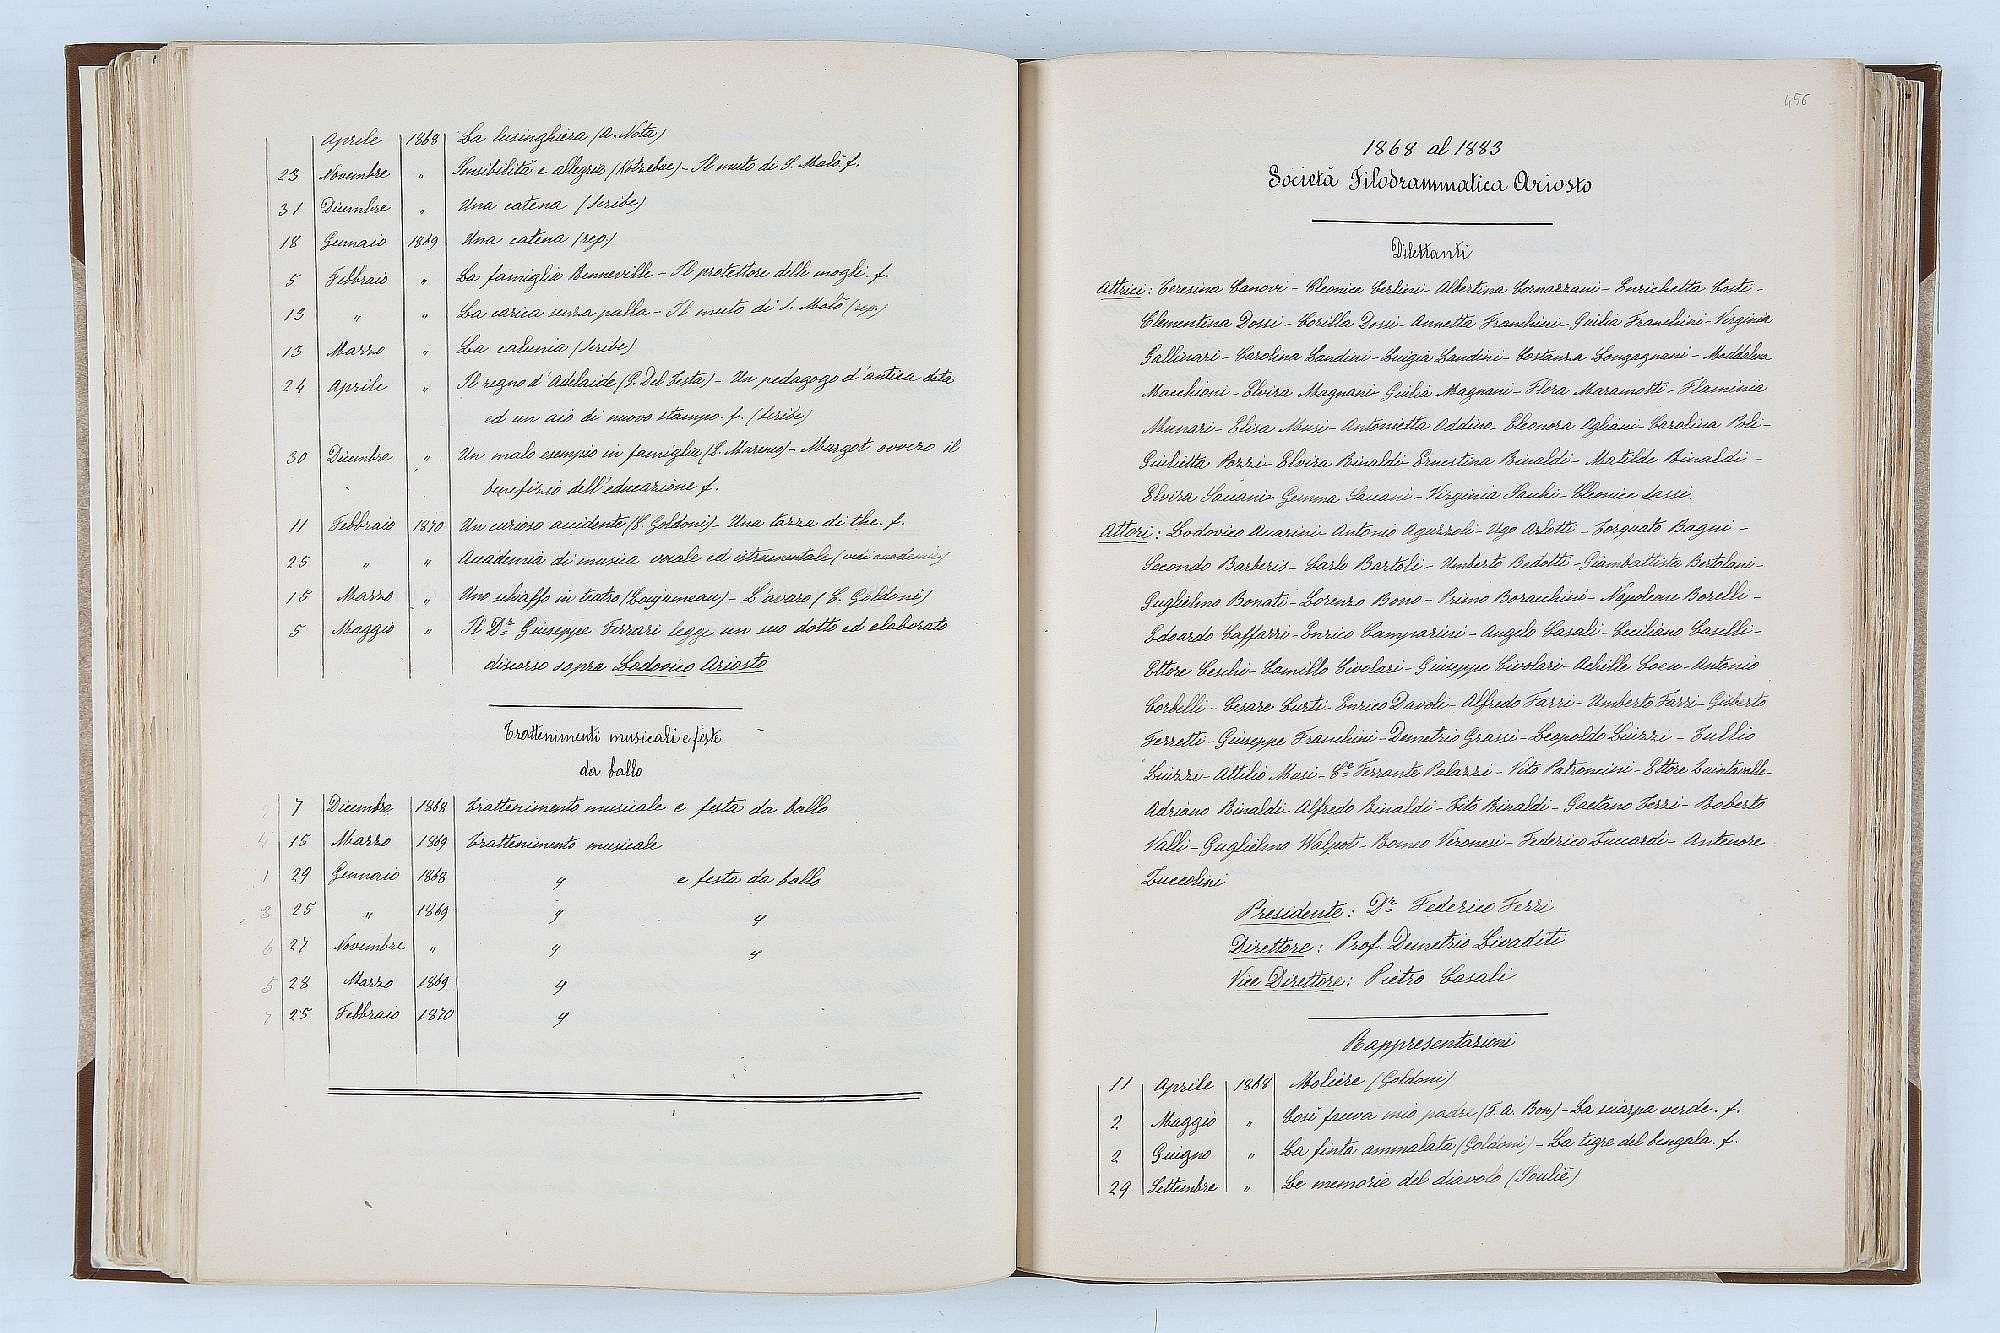 Aprile 1868 La lusinghiera (A. Nota)
23 Novembre " Sensibilità e allegria (Kotzebue) - Il muto di S. Malò f.
31 Dicembre " Una catena (Scribe)
18 Gennaio 1869 Una catena (rep)
5 Febbraio " La famiglia Benneville - Il protettore delle mogli f.
13 " " La carica senza palla - Il muto di S. Malò (rep)
13 Marzo " La calunia (Scribe)
24 Aprile " Il regno d'Adelaide (G. Del Testa) - Un pedagogo d'antica data
ed un aio di nuovo stampo f. (Scribe)
30 Dicembre " Un malo esempio in famiglia (S. Moreno) - Margot ovvero il
benefizio dell'educazione f.
11 Febbraio 1870 Un curioso accidente (C. Goldoni) - Una tazza di the. f.
25 " " Accademia di musica vocale ed istrumentale (vedi accademie)
15 Marzo " Uno schiaffo in teatro (Lonjumeau) - L'avaro (C. Goldoni)
5 Maggio " Il Dr Giuseppe Ferrari legge un suo dotto ed elaborato
discorso sopra Lodovico Ariosto
Trattenimenti musicali e feste
da ballo
2 7 Dicembre 1868 Trattenimento musicale e festa da ballo
4 15 Marzo 1869 Trattenimento musicale
1 29 Gennaio 1868 " e festa da ballo
3 25 " 1869 " "
6 27 Novembre " " "
5 28 Marzo 1869 "
7 25 Febbraio 1870 "
456
1868 al 1883
Società Filodrammatica Ariosto
Dilettanti
Attrici: Teresina Canovi - Cleonice Cerlini - Albertina Cornazzani - Enrichetta Costi -
Clementina Dossi - Corilla Dossi - Annetta Franchini - Giulia Franchini - Virginia
Gallinari - Carolina Landini - Luigia Landini - Costanza Longagnani - Maddalena
Macchioni - Elvira Magnani - Giulia Magnani - Flora Maramotti - Flaminia
Munari - Elisa Musi - Antonietta Oddino - Eleonora Ogliani - Carolina Poli -
Giulietta Pozzi - Elvira Rinaldi - Ernestina Rinaldi - Matilde Rinaldi -
Elvira Saccani - Gemma Saccani - Virginia - Cleonice Sassi
Attori: Lodovico Accarini - Antonio Aguzzoli - Ugo Arlotti - Torquato Bagni -
Secondo Barberis - Carlo Bartoli - Umberto Bedotti - Giambattista Bertolani -
Guglielmo Bonati - Lorenzo Bono - Primo Boracchini - Napoleone Borelli -
Edoardo Caffarri - Enrico Camparini - Angelo Casali - Ceciliano Caselli -
Ettore Ceschi - Camillo Civolari - Giuseppe Civolari - Achille Cocu - Antonio
Corbelli - Cesare Curti - Enrico Davoli - Alfredo Farri - Umberto Farri - Giberto
Ferretti - Giuseppe Franchini - Demetrio Grassi - Leopoldo Liuzzi - Tullio
Liuzzi - Attilio Musi - Ce Ferrante Palazzi - Vito Patroncini - Ettore Quintavalle -
Adriano Rinaldi - Alfredo Rinaldi - Tito Rinaldi - Gaetano Terzi - Roberto
Valli - Guglielmo Walpot - Romeo Veronesi - Federico Zuccardi - Antenore
Zuccolini
Presidente: Dr Federico Ferri
Direttore: Prof. Demetrio Livaditi
Vice Direttore: Pietro Casali
Rappresentazioni
11 Aprile 1868 Moliere (Goldoni)
2 Maggio " Così faceva mio padre (F. A. Bon) - La sciarpa verde. f.
2 Guigno " La finta ammalata (Goldoni) - La tigre del bengala. f.
29 Settembre " Le memorie del diavolo (Soulié)